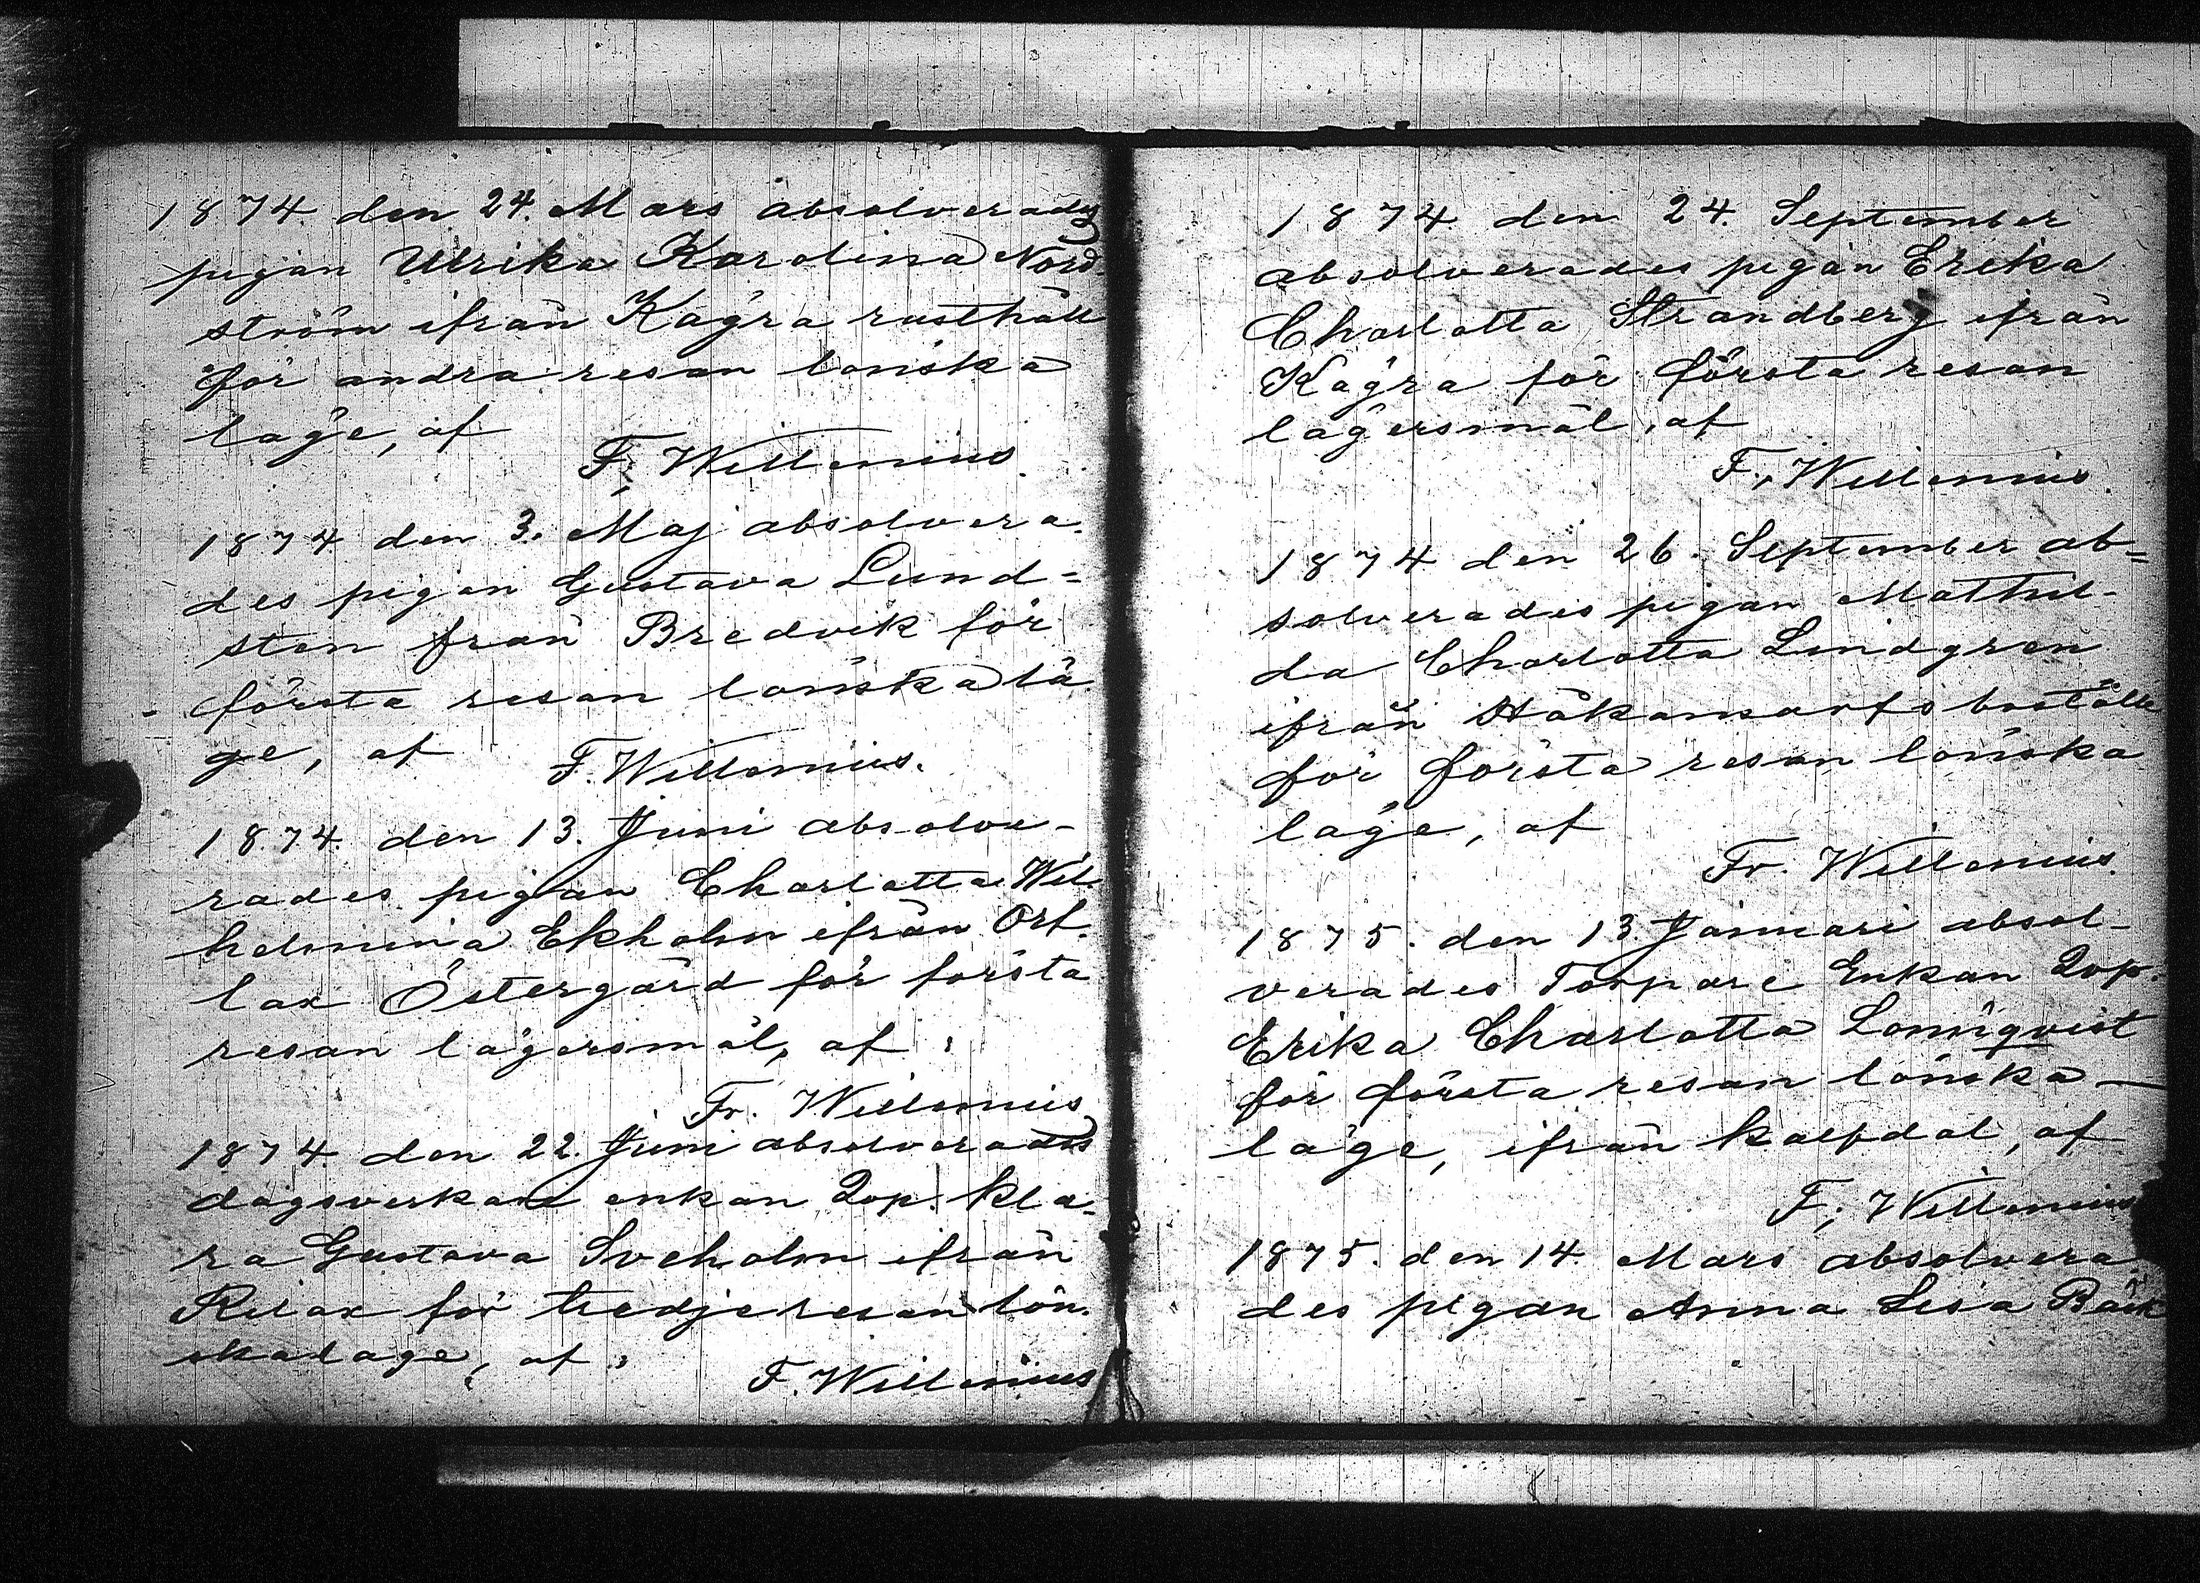 1874 den 24. Mars absolverades
pigan Ulrika Karolina Nord-
ström ifrån Kagra rusthåll
för andra resan lönska
läge, af
F. Willenius.
1874 den 3. Maj absolvera-
des pigan Gustava Lund=
sten från Bredvik för
första resan lönska lä-
ge, af
F. Willenius.
1874. den 13. Juni absolve-
rades pigan Charlotta Wil-
helmina Ekholm ifrån Orf-
lax Östergård för första
resan lägersmål, af
Fr. Willenius
1874. den 22. Juni absolverades
dagsverkare enkan Sop. Kla-
ra Gustava Sveholm ifrån
Relax för tredje resan lön-
skaläge, af
F. Willenius
1874 den 24. September
absolverades pigan Erika
Charlotta Strandberg ifrån
Kagra för första resan
lägersmål, af
F. Willenius.
1874 den 26. September ab=
solverades pigan Mathil-
da Charlotta Lindgren
ifrån Håkansarfs boställe
för första resan lönska
läge, af
Fr. Willenius.
1875. den 13. Januari absol-
verades Torpare Enkan Sop.
Erika Charlotta Lönnqvist
för första resan lönska-
läge, ifrån Kalfdal, af
F. Willenius
1875. den 14. Mars absolvera-
des pigan Anna Lisa Bäck